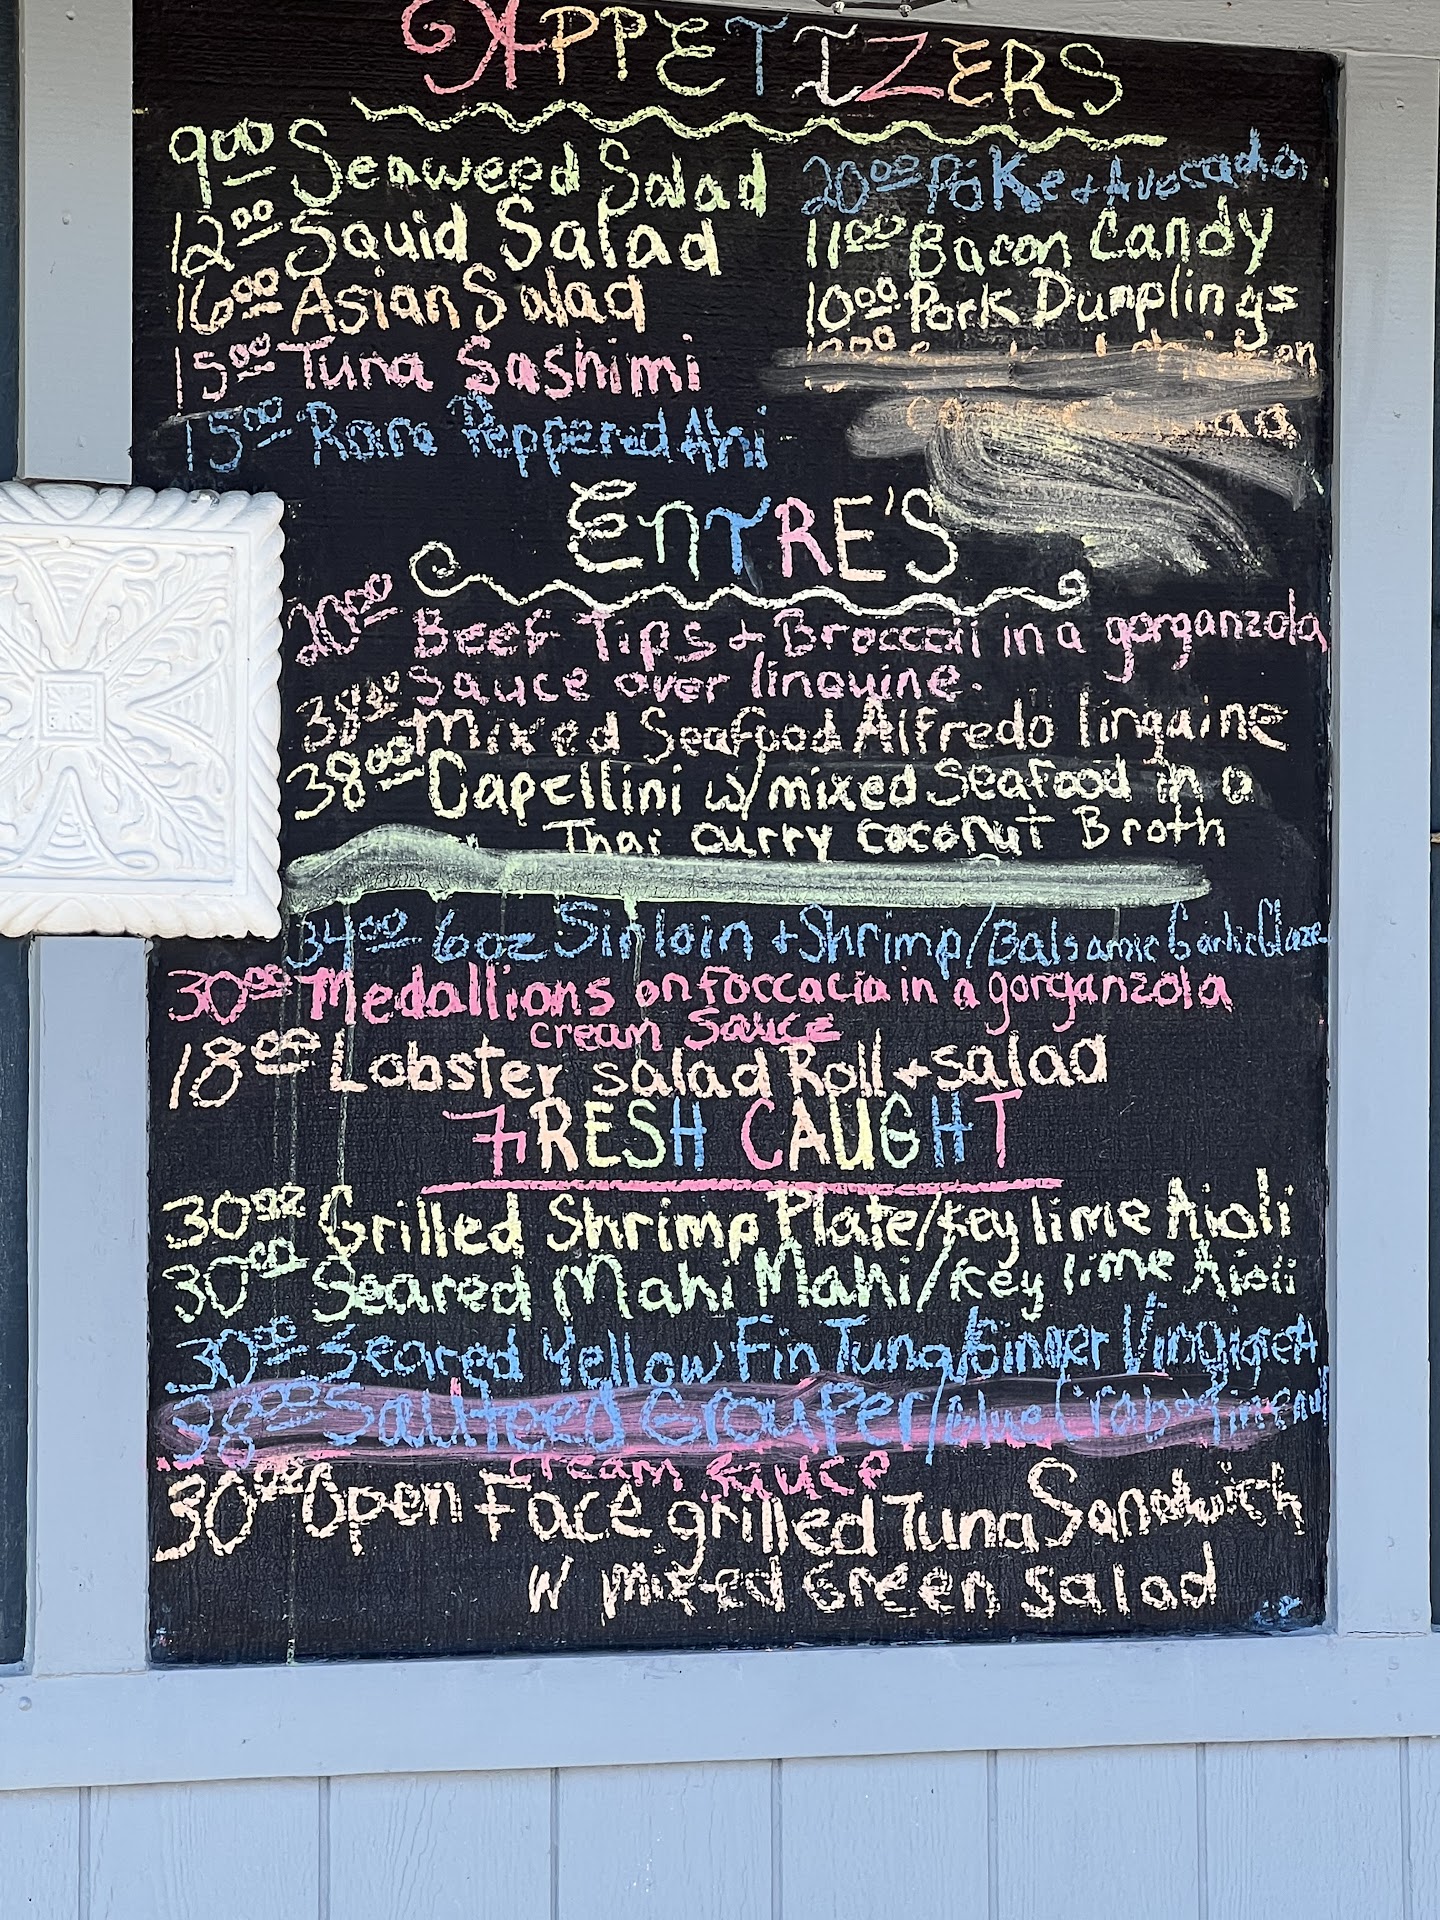 APPETIZERS
9.00 Seaweed Salad
12.00 Squid Salad
16.00 Asian Salad
15.00 Tuna Sashimi
15.00 Rare Peppered Ahi
20.00 Poke + Avocado
11.00 Bacon Candy
10.00 Pork Dumplings
ENTRE'S
20.00 Beef Tips + Broccoli in a gorganzola
Sauce over linguine.
38.00 Mixed Seafood Alfredo linguine
38.00 Capellini w/mixed Seafood in a
Thai curry coconut Broth
34.00 6oz Sirloin + Shrimp/Balsamic Garlic Glaze
30.00 Medallions on foccacia in a gorganzola
cream Sauce
18.00 Lobster salad Roll + salad
FRESH CAUGHT
30.00 Grilled Shrimp Plate/Key lime Aioli
30.00 Seared Mahi Mahi/Key lime Aioli
30.00 Seared Yellow Fin Tuna/Ginger
38.00 Sauteed Grouper/blue Crab
cream Sauce
30.00 Open Face grilled Tuna Sandwich
w mixed Green Salad